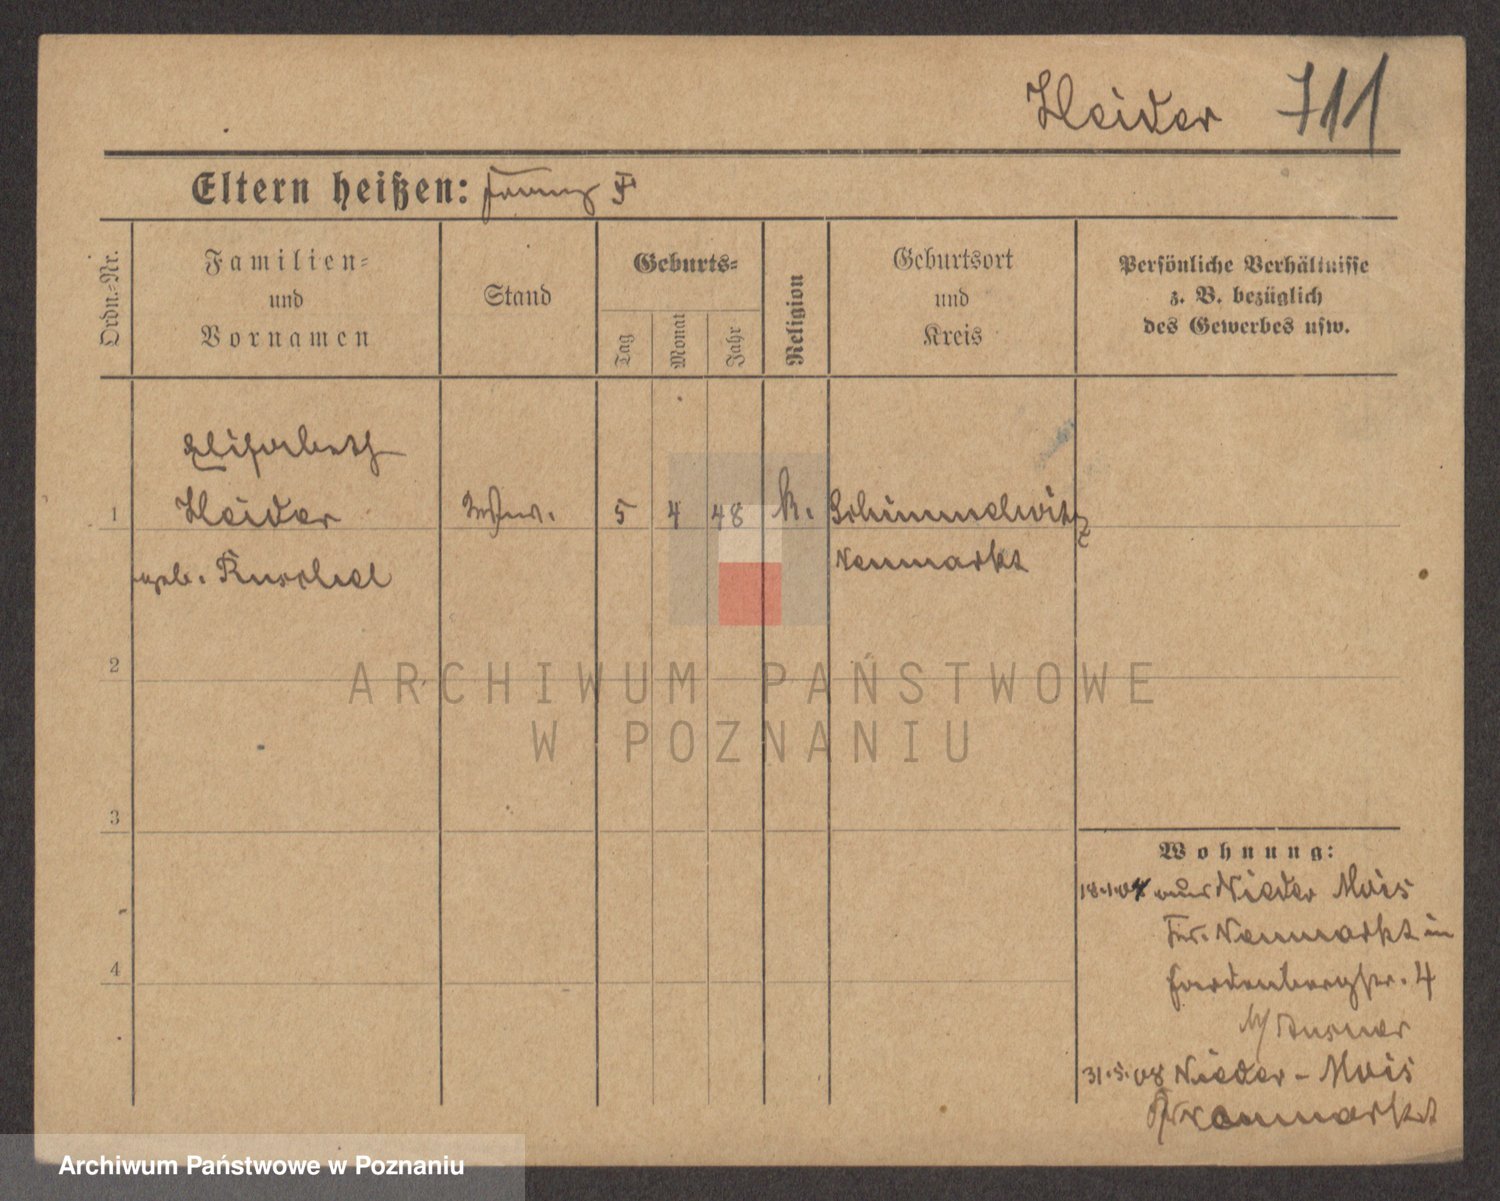 Heider 711
Eltern heißen: Franz F
Ordn.-Nr.
Familien-
und
Vornamen
Stand
Geburts-
Tag
Monat
Jahr
Religion
Geburtsort
und
Kreis
Persönliche Verhältnisse
z. B. bezüglich
des Gewerbes usw.
Elisabeth
1 Heider Wtw. 5 4 48 k. Schimmelwitz
geb. Kuschel Neumarkt
2
ARCHIWUM PAŃSTWOWE
W POZNANIU
3
4
Wohnung:
18.1.04 aus Nieder Mois
Kr. Neumarkt in
Hardenbergstr. 4
31.5.08 Nieder-Mois
Neumarkt
Archiwum Państwowe w Poznaniu